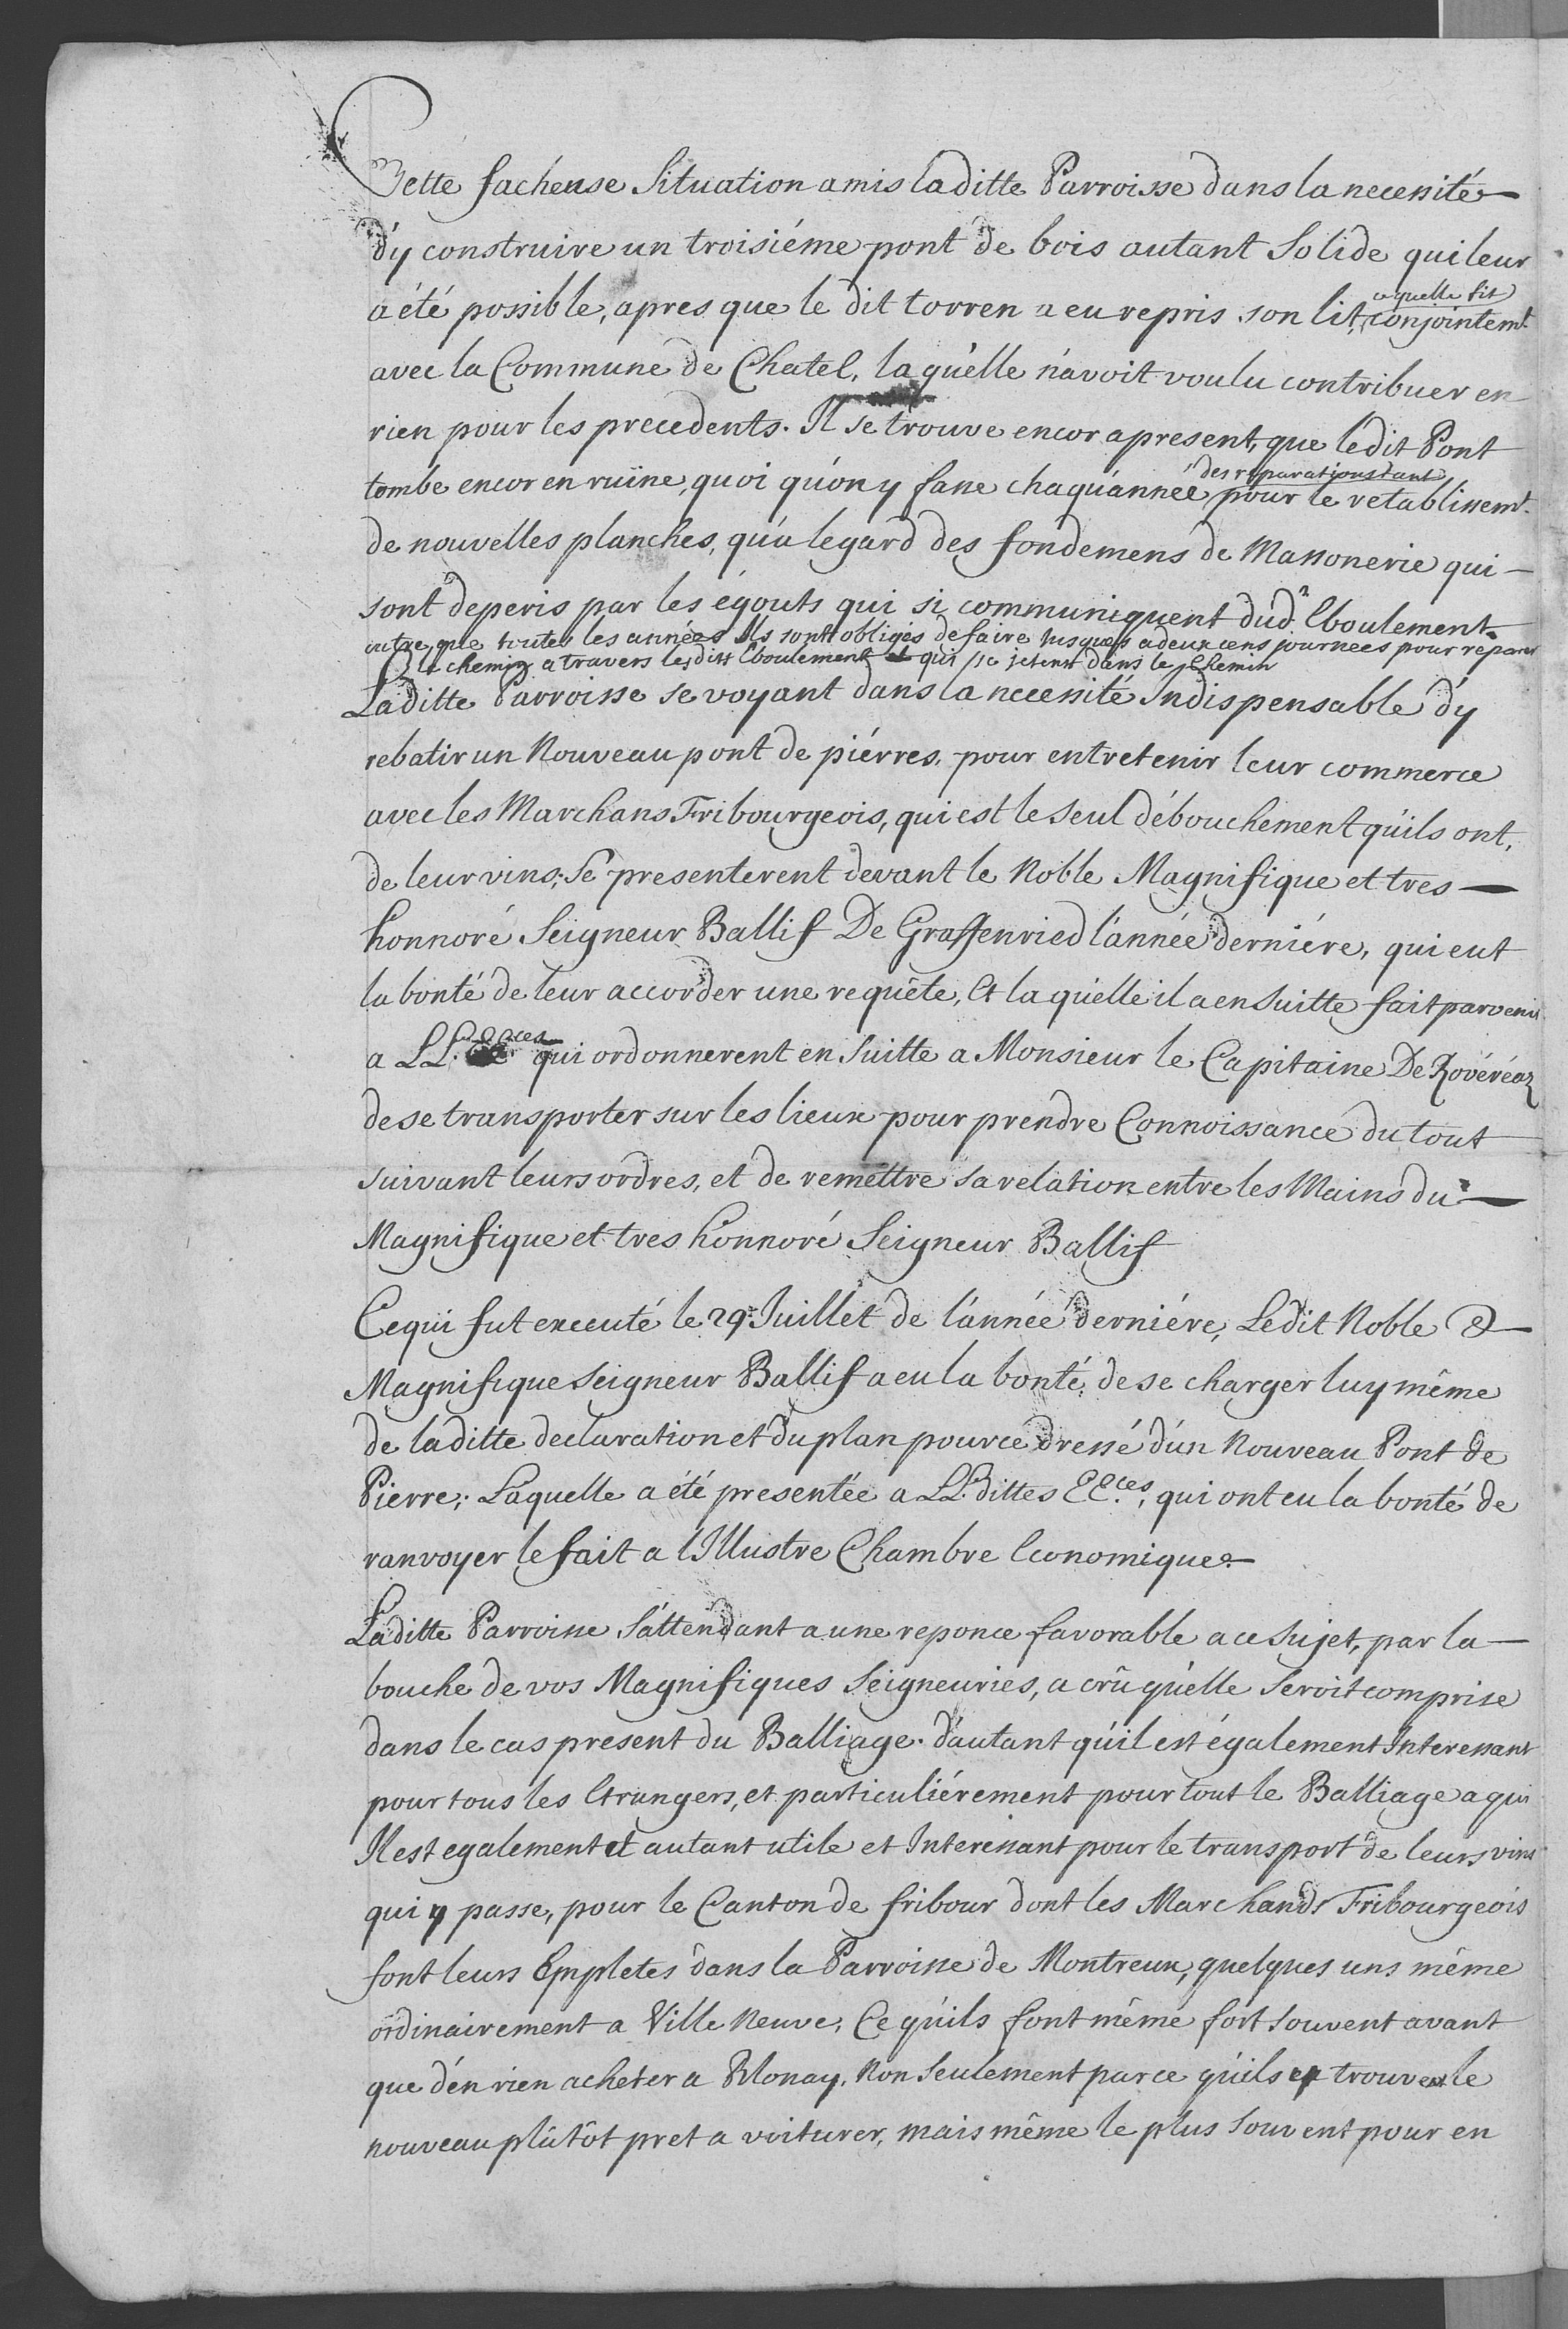 Cette facheuse Situation a mis laditte Parroisse dans la necessité
d'y construire un troisiéme pont de bois autant Solide qui leur
a été possible, apres que le dit torren a eu repris son lit, ce quelle fit conjointemt.
avec la Commune de Chatel, laquelle n'avoit voulu contribuer en
rien pour les precedents. Il se trouve encor apresent, que ledit Pont
tombe encor en ruïne, quoi qu'on y fasse chaqu'année des reparations tant pour le retablissemt.
de nouvelles planches, qu'a legard des fondemens de Massonerie qui
sont deperis par les égouts qui si communiquent dud. Eboulement.
outre que toutes les années Ils sont obligés de faire Jusques a deux cens journees pour reparer
le chemin a travers lesdits Eboulement qui se jetent dans le Chemin
Laditte Parroisse se voyant dans la necessité Indispensable d'y
rebatir un Nouveau pont de piérres, pour entretenir leur commerce
avec les Marchans Fribourgeois, qui est le Seul débouchement qu'ils ont,
de leur vins; Se presenterent devant le Noble Magnifique et tres
honnoré Seigneur Ballif De Graffenried l'année derniére, qui eut
la bonté de leur accorder une requête, Et laquelle il a en Suitte fait parvenir
a LL. EEces qui ordonnerent en Suitte a Monsieur le Capitaine De Rovéréaz
de se transporter sur les lieux pour prendre Connoissance du tout
suivant leurs ordres, et de remettre sa relation entre les Mains du
Magnifique et tres honnoré Seigneur Ballif
Ce qui fut executé le 29. Juillet de l'année derniére, Ledit Noble &
Magnifique Seigneur Ballif a eu la bonté de se charger luy même
de laditte declaration et du plan pource dressé d'un Nouveau Pont de
Pierre; Laquelle a été presentée a LL. dittes EEces, qui ont eu la bonté de
ranvoyer le fait a l'Illustre Chambre Economique.
Laditte Parroisse s'attendant a une reponce favorable a ce Sujet, par la
bouche de vos Magnifiques Seigneuries, a crû qu'elle Seroit comprise
dans le cas present du Balliage. d'autant qu'il est également Interessant
pour tous les Etrangers, et particuliérement pour tout le Balliage a qui
Il est egalement et autant utile et Interessant pour le transport de leurs vins
qui y passe, pour le Canton de fribour dont les Marchands Fribourgeois
font leurs Empletes dans la Parroisse de Montreux, quelques uns même
ordinairement a Ville Neuve, Ce qu'ils font même fort souvent avant
que d'en rien acheter a Blonay, Non Seulement parce qu'ils en trouvent le
nouveau plûtôt pret a voiturer, mais même le plus Souvent pour en